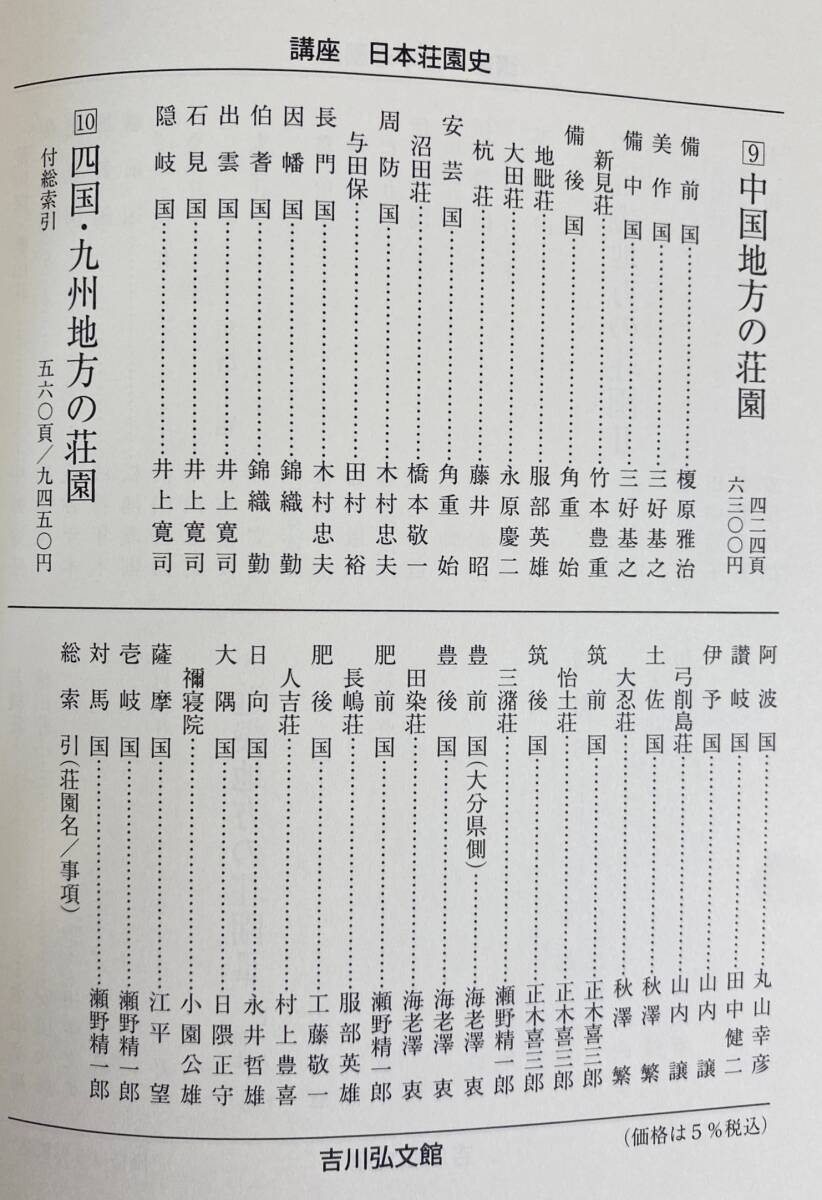 講座 日本荘園史
9 中国地方の荘園
四二四頁
六三〇〇円
備前国……………榎原雅治
美作国……………三好基之
備中国……………三好基之
新見荘……………竹本豊重
備後国……………角重始
地毗荘……………服部英雄
大田荘……………永原慶二
杭荘……………藤井昭
安芸国……………角重始
沼田荘……………橋本敬一
周防国……………木村忠夫
与田保……………田村裕
長門国……………木村忠夫
因幡国……………錦織勤
伯耆国……………錦織勤
出雲国……………井上寛司
石見国……………井上寛司
隠岐国……………井上寛司
10 四国・九州地方の荘園
付総索引
五六〇頁/九四五〇円
阿波国……………丸山幸彦
讃岐国……………田中健二
伊予国……………山内譲
弓削島荘……………山内譲
土佐国……………秋澤繁
大忍荘……………秋澤繁
筑前国……………正木喜三郎
怡土荘……………正木喜三郎
筑後国……………正木喜三郎
三潴荘……………瀬野精一郎
豊前国(大分県側)……………海老澤衷
豊後国……………海老澤衷
田染荘……………海老澤衷
肥前国……………瀬野精一郎
長嶋荘……………服部英雄
肥後国……………工藤敬一
人吉荘……………村上豊喜
日向国……………永井哲雄
大隅国……………日隈正守
禰寝院……………小園公雄
薩摩国……………江平望
壱岐国……………瀬野精一郎
対馬国……………瀬野精一郎
総索引(荘園名/事項)
(価格は5%税込)
吉川弘文館